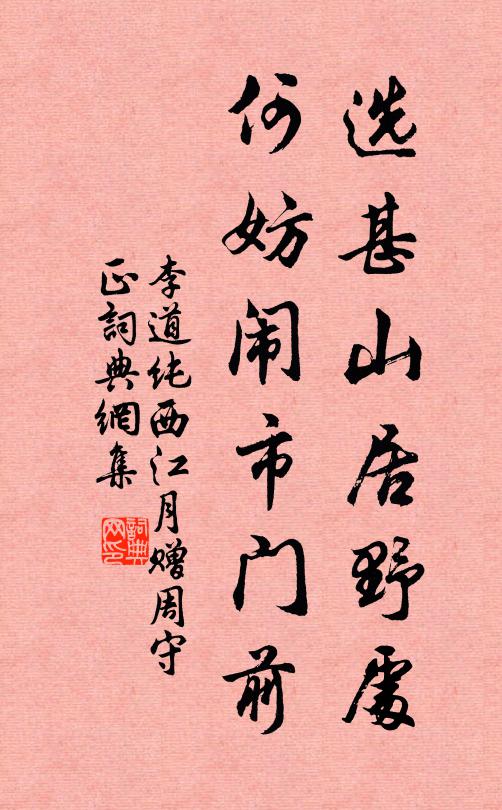 选甚山居野處
何妨闹市门前
李道纯西江月赠周守
正詞典網集
詞典网印